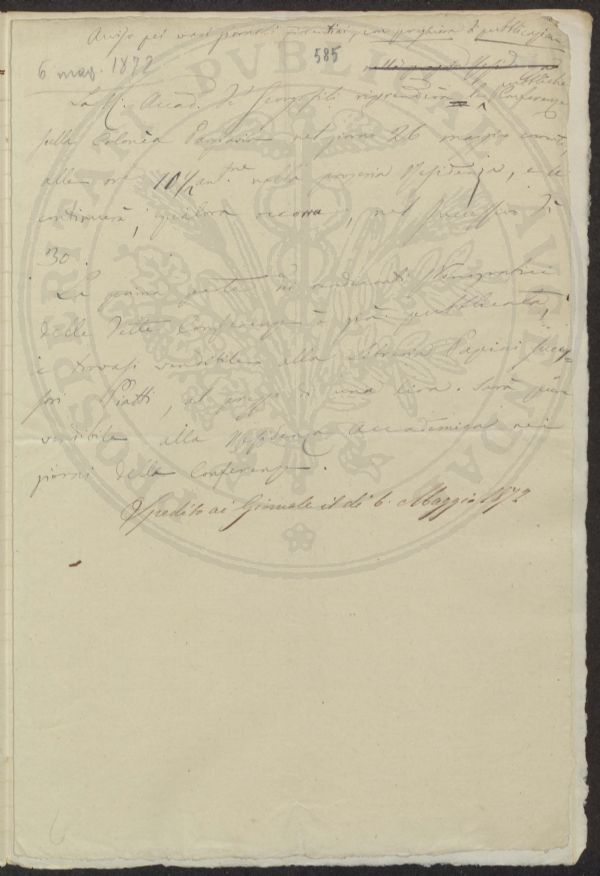 Avviso pei vari giornali fiorentini, con preghiera di pubblicazione
585
6 mag. 1872
La R. Accad. de' Georgofili riprenderà le Conferenze pubbliche
sulla Colonia Parziaria nel giorno 26 maggio corrente,
alle ore 10 1/2 ant.ne nella propria Residenza, e le
continuerà, qualora occorra, nel successivo dì
30.
La prima parte dei rendiconti stenografici
delle dette Conferenze è già pubblicata,
e trovasi vendibile alla Libreria Papini succes-
sori Piatti, al prezzo di una lira. Sarà pure
vendibile alla Residenza Accademica nei
giorni della Conferenze.
Spedito ai Giornale il dì 6. Maggio 1872
6
PROSPERITATI PUBLICAE AUGENDAE